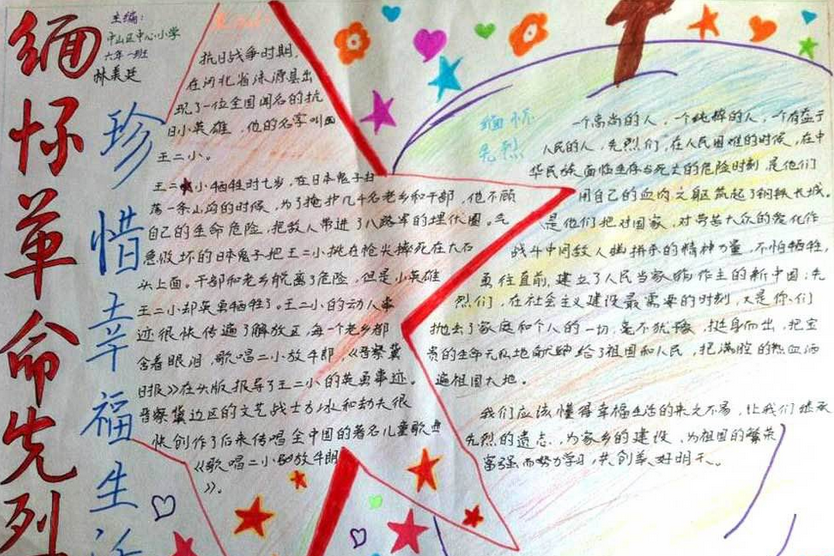 缅怀革命先烈
珍惜幸福生活
主编:
中山区中心小学
六年一班
林美廷
抗日战争时期,
在河北省涞源县出
现了一位全国闻名的抗
日小英雄,他的名字叫
王二小。
王二小牺牲时七岁,在日本鬼子扫
荡一条山沟的时候,为了掩护几千名老乡和干部,他不顾
自己的生命危险,把敌人带进了八路军的埋伏圈。气
急败坏的日本鬼子把王二小挑在枪尖摔死在大石
头上面。干部和老乡脱离了危险,但是小英雄
王二小却英勇牺牲了。王二小的动人事
迹很快传遍了解放区,每一个老乡都
含着眼泪,歌唱二小放牛郎,《晋察冀
日报》在头版报导了王二小的英勇事迹。
晋察冀边区的文艺战士方冰和劫夫很
快创作了后来传唱全中国的著名儿童歌曲
《歌唱二小放牛郎
》。
缅怀
先烈
一个高尚的人,一个纯粹的人,一个有益于
人民的人,先烈们,在人民困难的时候,在中
华民族面临生存与死亡的危险时刻,是他们
用自己的血肉之躯筑起了钢铁长城。
是他们把对国家,对劳苦大众的爱化作
战斗中同敌人拼杀的精神力量,不怕牺牲,
勇往直前,建立了人民当家作主的新中国;先
烈们,在社会主义建设最需要的时刻,又是你们
抛去了家庭和个人的一切,毫不犹豫,挺身而出,把宝
贵的生命无私地献给了祖国和人民,把满腔的热血洒
遍祖国大地。
我们应该懂得幸福生活的来之不易,让我们继承
先烈的遗志,为家乡的建设,为祖国的繁荣
富强而努力学习,共创美好明天。